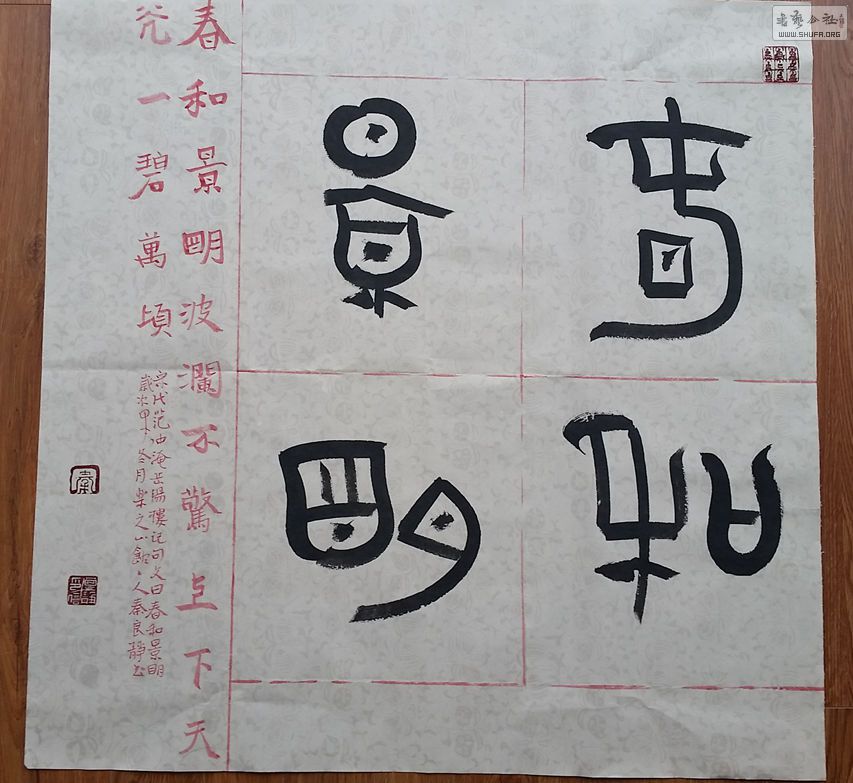 春和
景明
春和景明波瀾不驚上下天
光一碧萬頃
宋代范仲淹岳陽樓記句文曰春和景明
歲次甲午冬月樂之山館人秦良靜书
書藝公社
WWW.SHUFA.ORG